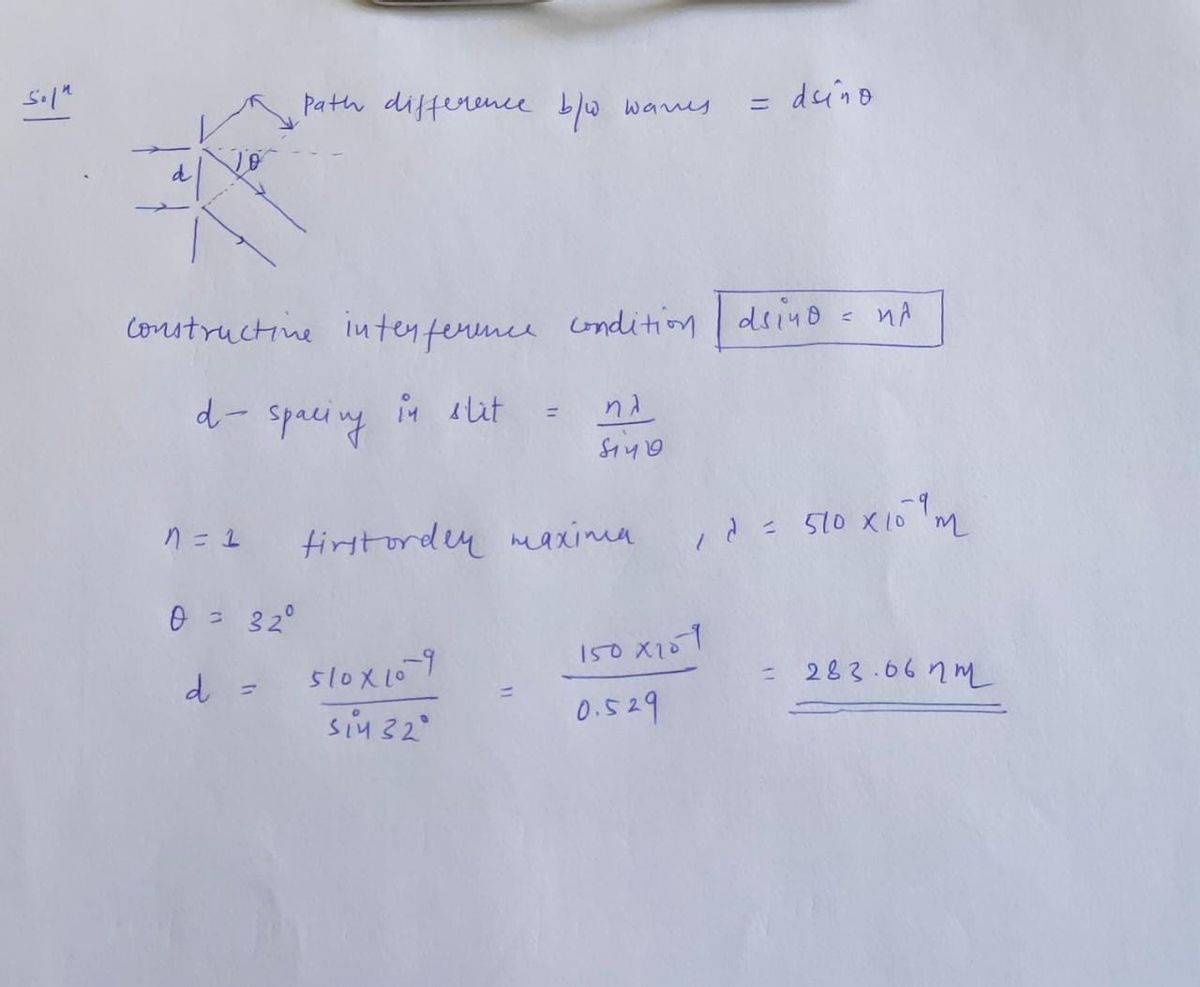 Solⁿ
Path difference b/w waves = dsinθ
d θ
Constructive interference condition dsinθ = nλ
d - spacing in slit = nλ/sinθ
n = 1 first order maxima , λ = 510 x 10⁻⁹ m
θ = 32°
d = 510 x 10⁻⁹/sin 32° = 150 x 10⁻⁹/0.529 = 283.06 nm